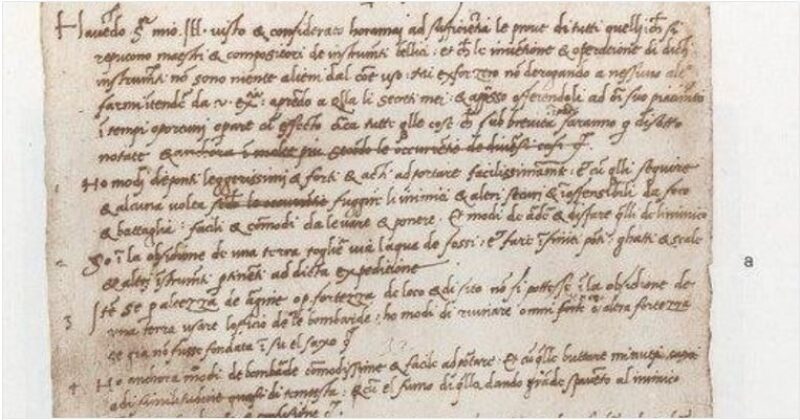 Havēdo S.re mio Ill. visto & considerato horamai ad sufficiētia le prove di tutti quelli che si
reputono maestri & compositori de instrumēti bellici: et che le invētione & operatione di dicti
instrumēti nō sono niente alieni dal cōe uso: Mi exforzerò nō derogando a nessuno al
farmi intendere da v. ex.tia: aprēdo a q̄lla li secreti mei: & apresso offerēdoli ad ōi suo piacimēto
ī tempi oportuni operare cū effecto circa tutte q̄lle cose che sub brevità saranno q̄ disotto
notate & anchora ī molte più secōdo le occurrētie de diversi casi
Ho modi de ponti leggerissimi & forti & acti ad portare facilissimamēte: et cū q̄lli seguire
& alcuna volta fuggire li inimici & altri securi & īoffensibili da foco
& battaglia: facili & cōmodi da levare & ponere. Et modi de ardere & disfare q̄lli de linimico
2 So ī la obsidione de una terra toglier via laqua de fossi: et fare īfiniti pōti ghatti & scale
& altri īstrumēti ptinēti ad dicta expeditione
3 Itē se p altezza de argine o p fortezza de loco & di sito nō si pottesse ī la obsidione de
una terra usare lofficio de le bombarde: ho modi di ruinare omni forte o altra fortezza
se già nō fusse fondata ī su el saxo
4 Ho anchora modi de bombarde cōmodissime & facile ad portare: Et cū q̄lle buttare minuti
ad similitudine quasi di tempesta: & cū el fumo di q̄lla dando grāde spavēto al inimico
a